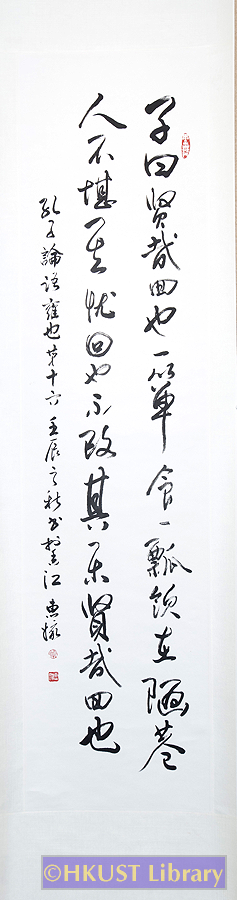 子曰賢哉回也一簞食一瓢飲在陋巷
人不堪其忧回也不改其樂賢哉回也
孔子論語雍也第十六壬辰之秋书江 惠
©HKUST Library